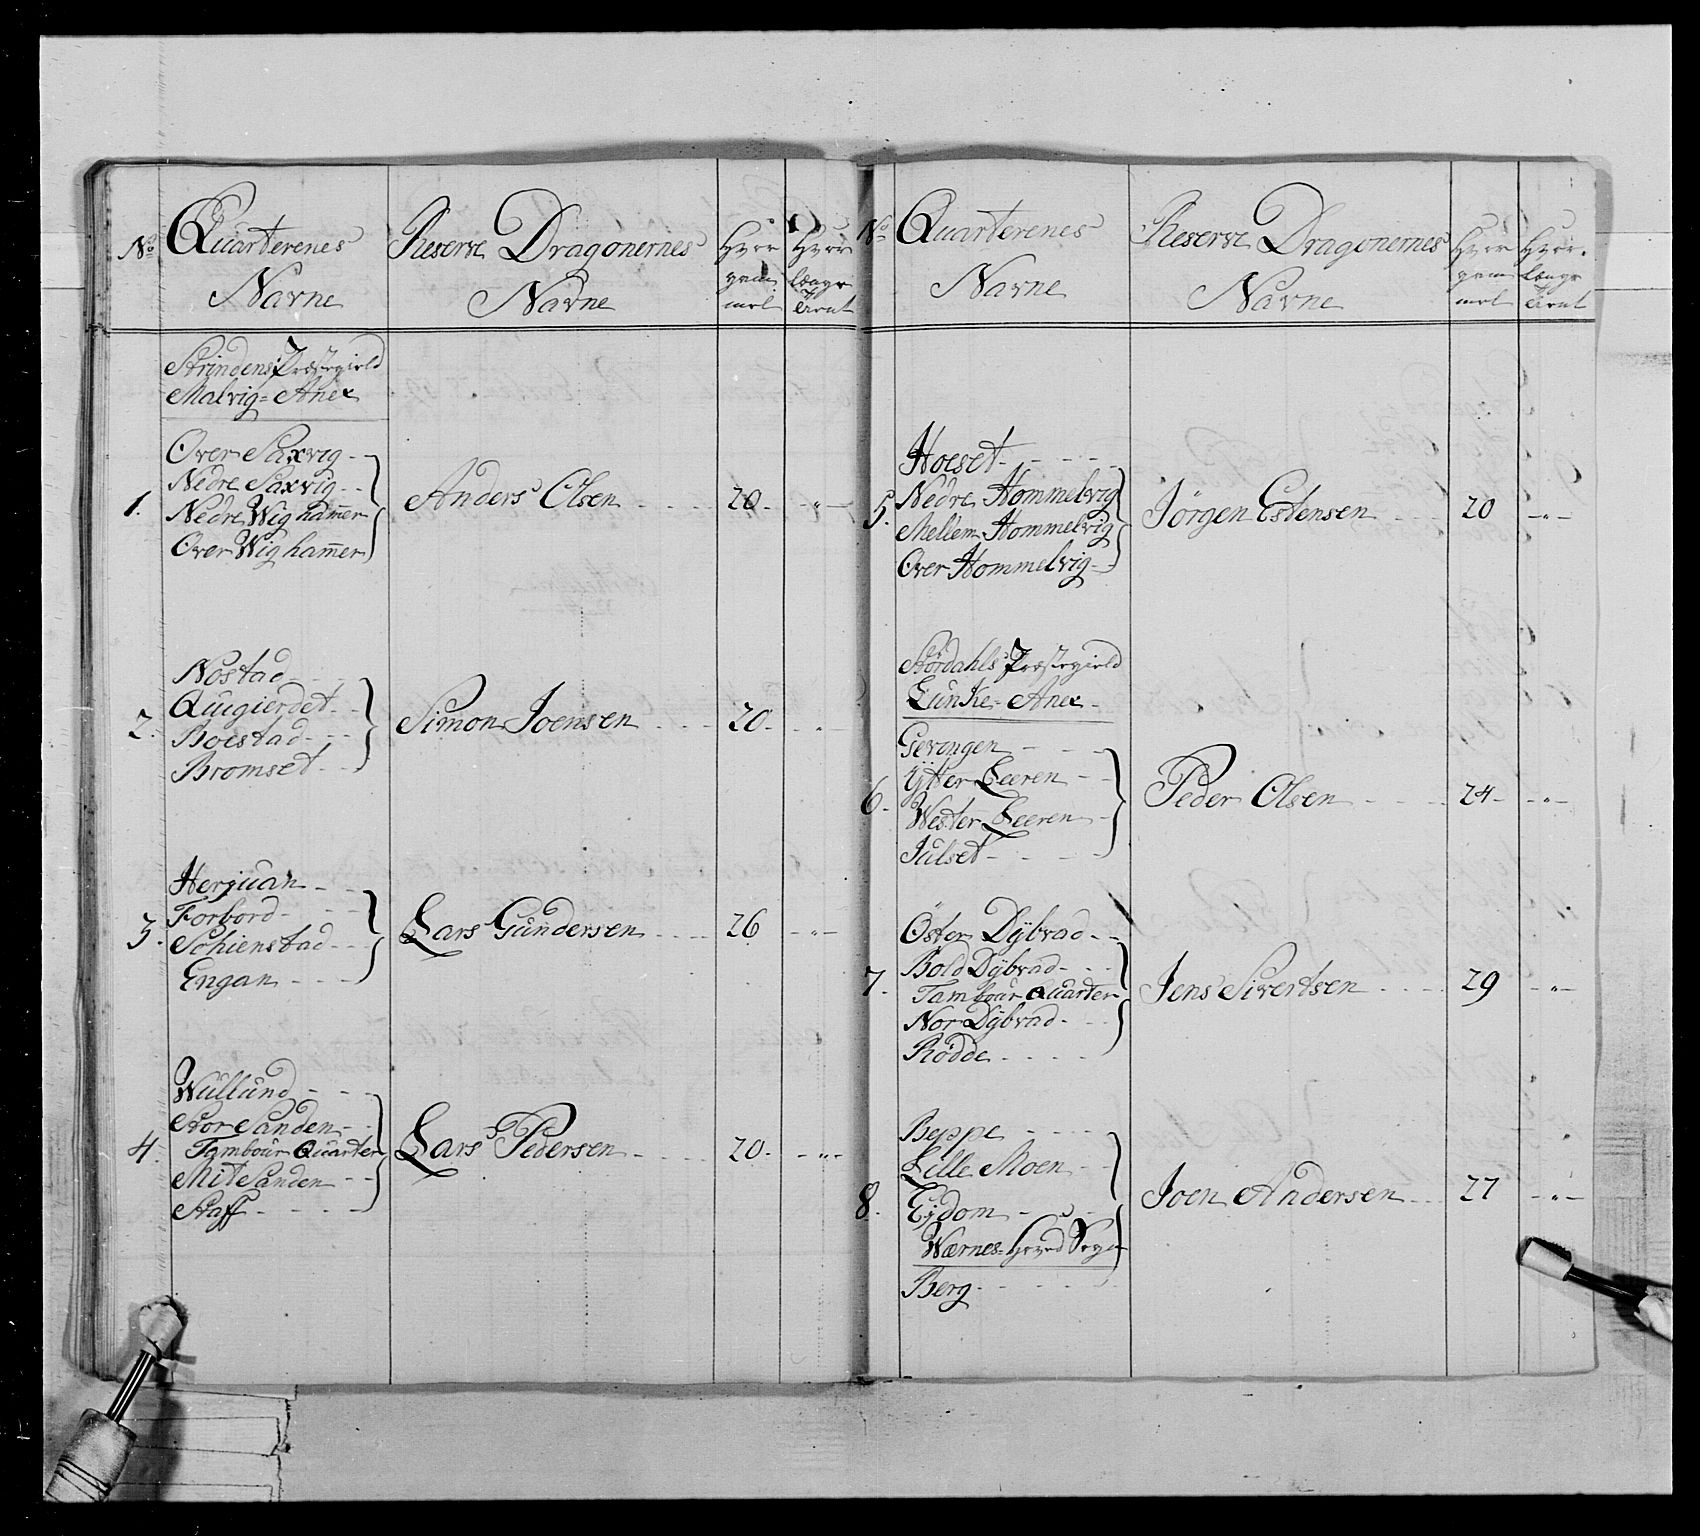 No. Quarterenes Navne
Reserve Dragonernes Navne
Hvor gammel
Hvor længe tient
Strindens Præstegield
Malvig=Anex
Over Saxvig
Nedre Saxvig
Nedre Wighammer
Over Wighammer
1. Anders Olsen 20. - " -
Nostad
Qvugierdet
Boestad
Bromset
2. Simon Joensen 20. - " -
Herjuan
Forbord
Schienstad
Engan
3. Lars Gundersen 26 - " -
Wullund
Stor Sanden
Tambour Quarter
Mit Sanden
Staff
4. Lars Pedersen 20. - " -
No. Quarterenes Navne
Reserve Dragonernes Navne
Hvor gammel
Hvor længe tient
Hoeset
Nedre Hommelvig
Mellem Hommelvig
Over Hommelvig
5. Jörgen Estensen 20 - " -
Stördahls Præstegield
Lunke=Anex
Gevingen
Ÿtter Leeren
Wester Leeren
Julset
6. Peder Olsen 24 - " -
Öster Dÿbvad
Bold Dÿbvad
Tambour Quarter
Nor Dÿbvad
Rödde
7. Jens Sivertsen 29 - " -
Beppe
Lille Moen
Ejdom
Wærnes=Hoved Sogn
Berg
8. Joen Andersen 27 - " -